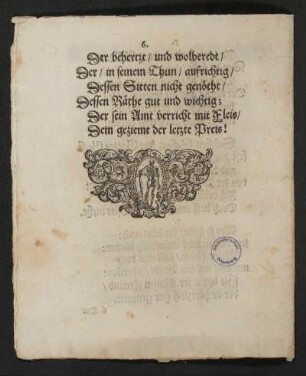 6.
Der behertzt/ und wolberedt/
Der/ in seinem Thun/ aufrichtig/
Dessen Sitten nicht genötht/
Dessen Räthe gut und wichtig;
Der sein Amt verricht mit Fleis/
Dem gezieme der letzte Preis!